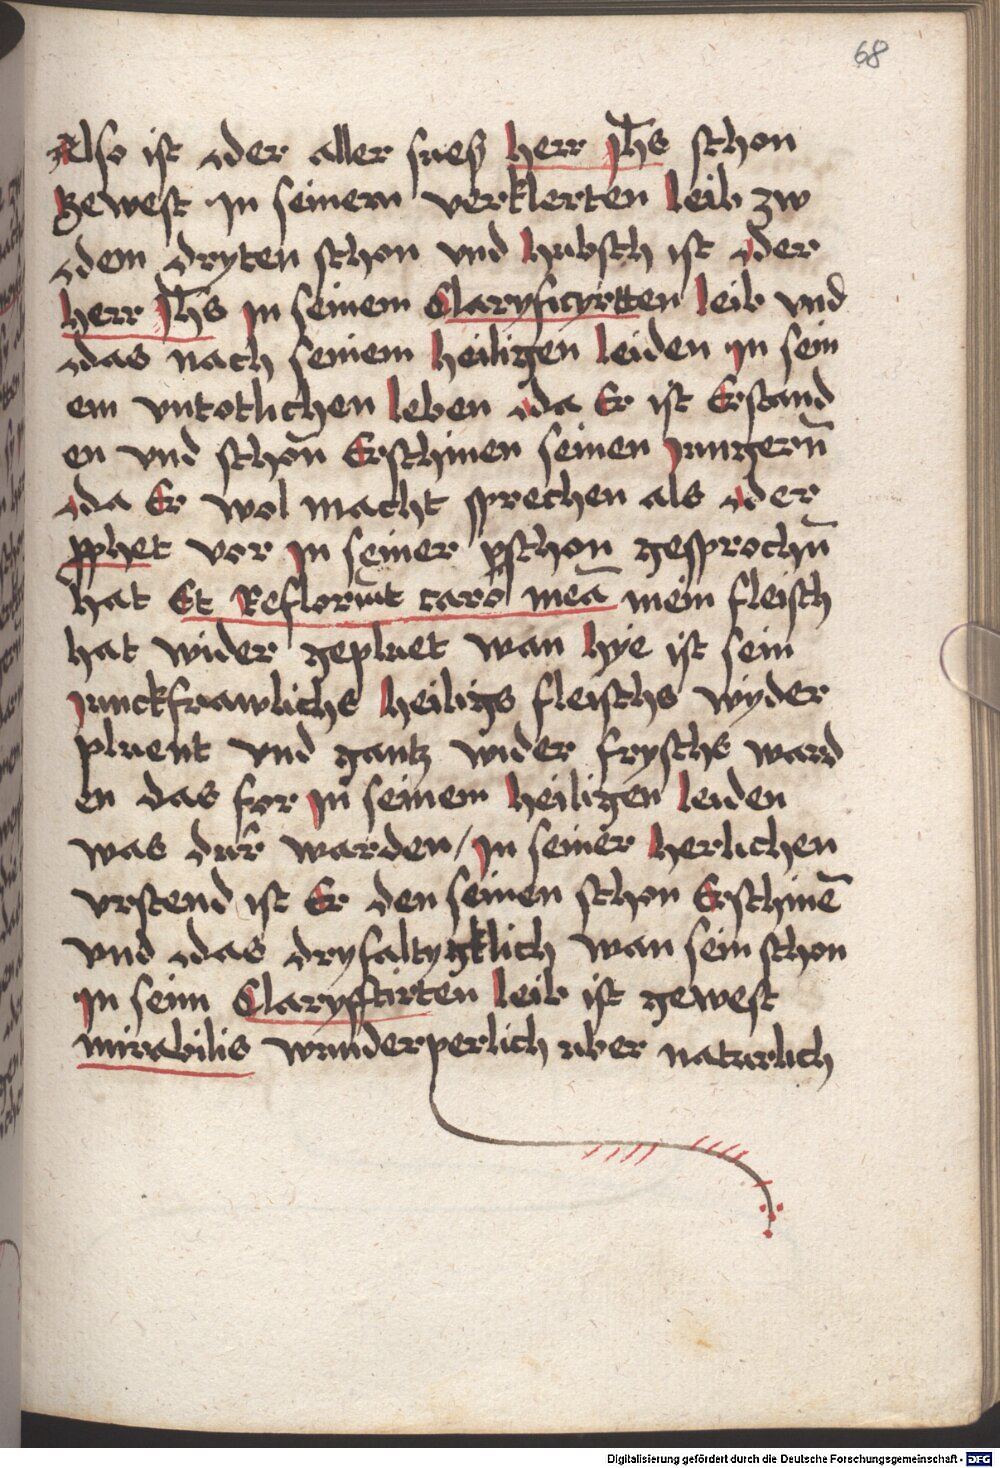 68
Also ist der aller sues herr Jhs schon
gewest In seinem verklerten leib zw
dem dryten schon vnd hubsch ist der
herr Jhs In seinem Claryficyrtten leib vnd
das nach seinem heiligen leiden In sein
em vntotlichen leben da Er ist Erstand
en vnd schon Erschinen seinen Jungern̄
da Er wol macht sprechen als der
pphet vor In seiner pschon gesprochn̄
hat Et Refloruit caro mea mein fleisch
hat wider gepluet wan hye ist sein
Junckfrawlichs heiligs fleischs wyder
pluent vnd gantz wider fryschs ward
en das for In seinem heiligen leiden
was durr warden / In seiner herlichen
vrstend ist Er den seinen schon Erschinē
vnd das dryfaltygklich wan sein schon
In seim Claryfirten leib ist gewest
mirabilis wunderperlich uber naturlich
Digitalisierung gefördert durch die Deutsche Forschungsgemeinschaft - DFG